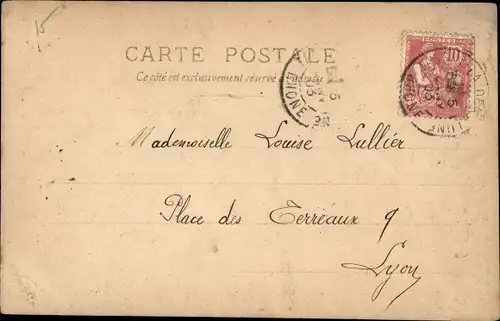 15
CARTE POSTALE
Ce côté est exclusivement réservé à l'adresse
POSTES
10
RHÔNE
RHÔNE
Mademoiselle Louise Lullier
Place des Terreaux 9
Lyon